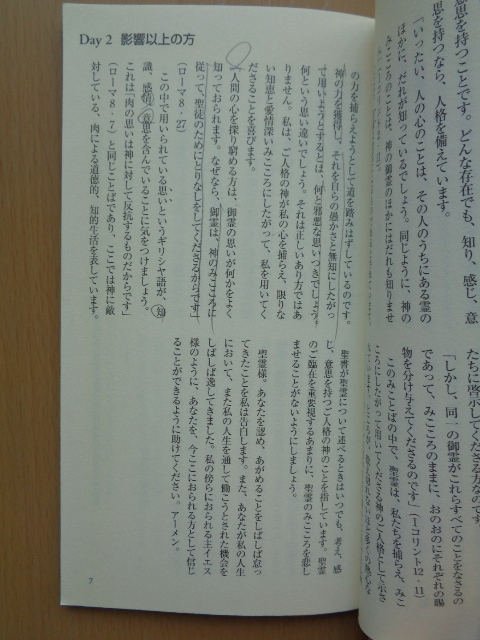 Day 2 影響以上の方
思を持つことです。どんな存在でも、知り、感じ、意
思を持つなら、人格を備えています。
「いったい、人の心のことは、その人のうちにある霊の
ほかに、だれが知っているでしょう。同じように、神の
みこころのことは、神の御霊のほかにはだれも知りませ
たちに啓示してくださる方なのです。
「しかし、同一の御霊がこれらすべてのことをなさるの
であって、みこころのままに、おのおのにそれぞれの賜
物を分け与えてくださるのです」（Ⅰコリント12・11）
このみことばの中で、聖霊は、私たちを捕らえ、みこ
の力を捕らえようとして道を踏みはずしているのです。
神の力を獲得し、それを自らの愚かさと無知にしたがっ
て用いようとするとは、何と邪悪な思いつきでしょう。
何という思い違いでしょう。それは正しいあり方ではあ
りません。私は、ご人格の神が私の心を捕らえ、限りな
い知恵と愛情深いみこころにしたがって、私を用いてく
ださることを喜びます。
「人間の心を探り窮める方は、御霊の思いが何かをよく
知っておられます。なぜなら、御霊は、神のみこころに
従って、聖徒のためにとりなしをしてくださるからです」
（ローマ8・27）
この中で用いられている思いというギリシヤ語が、知
識、感情、意思を含んでいることに気をつけましょう。
これは「肉の思いは神に対して反抗するものだからです」
（ローマ8・7）と同じことばであり、ここでは神に敵
対している、肉による道徳的、知的生活を表しています。
聖書が聖霊について述べるときはいつでも、考え、感
じ、意思を持つご人格の神のことを指しています。聖霊
のご臨在を重要視するあまりに、聖霊のみこころを悲し
ませることがないようにしましょう。
聖霊様。あなたを認め、あがめることをしばしば怠っ
てきたことを私は告白します。また、あなたが私の人生
において、また私の人生を通して働こうとされた機会を
しばしば逸してきました。私の傍らにおられる主イエス
様のように、あなたを、今ここにおられる方として信じ
ることができるように助けてください。アーメン。
7